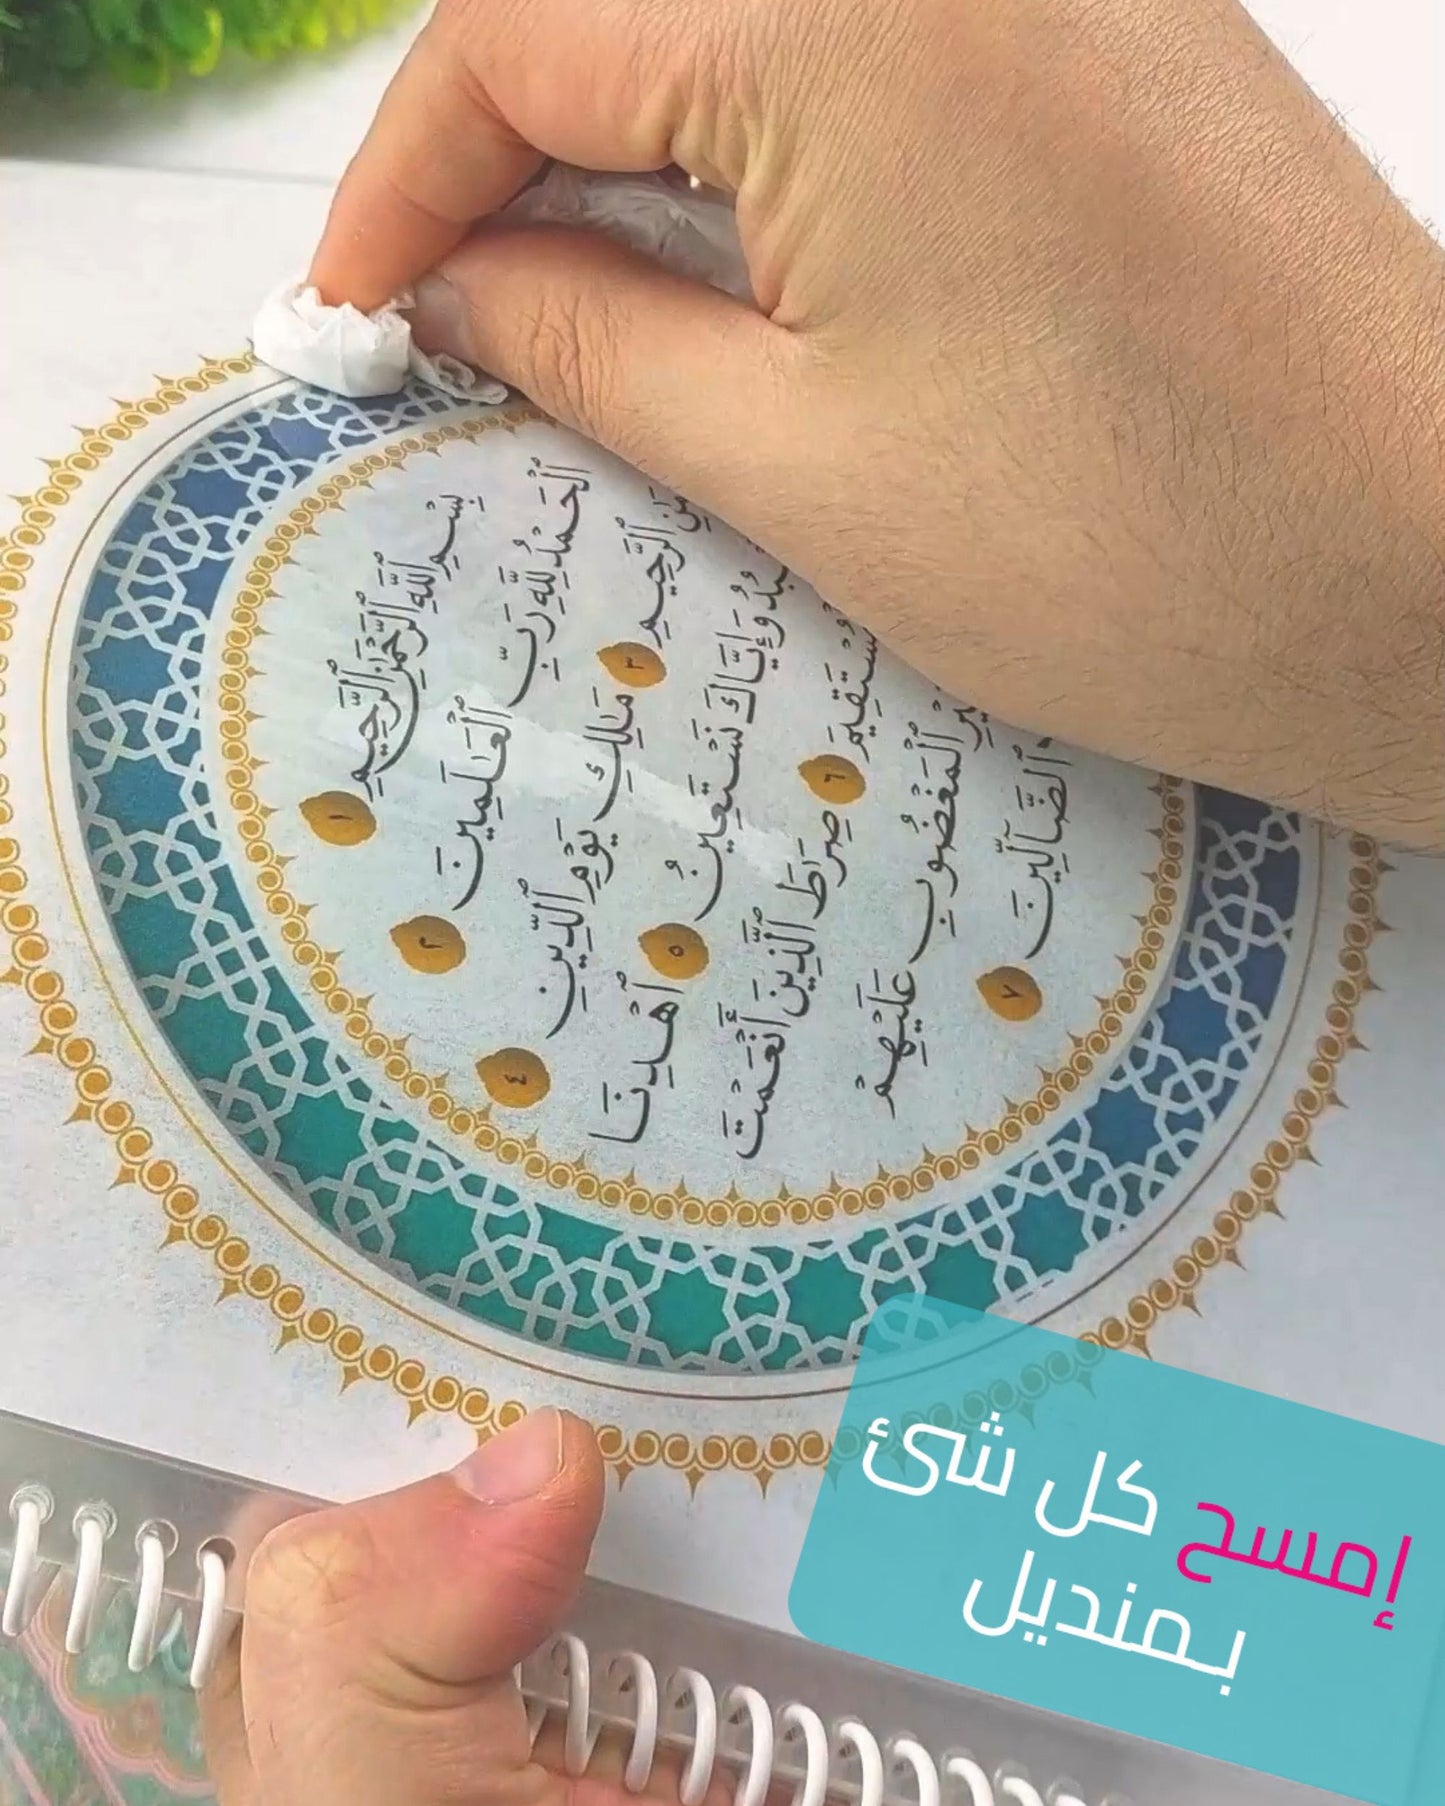 بِسْمِ ٱللَّهِ ٱلرَّحْمَٰنِ ٱلرَّحِيمِ ١
ٱلْحَمْدُ لِلَّهِ رَبِّ ٱلْعَٰلَمِينَ ٢
ٱلرَّحِيمِ ٣ مَٰلِكِ يَوْمِ ٱلدِّينِ ٤
وَإِيَّاكَ نَسْتَعِينُ ٥ ٱهْدِنَا
٦ صِرَٰطَ ٱلَّذِينَ أَنْعَمْتَ
ٱلْمَغْضُوبِ عَلَيْهِمْ
ٱلضَّآلِّينَ ٧
إمسح كل شئ
بمنديل